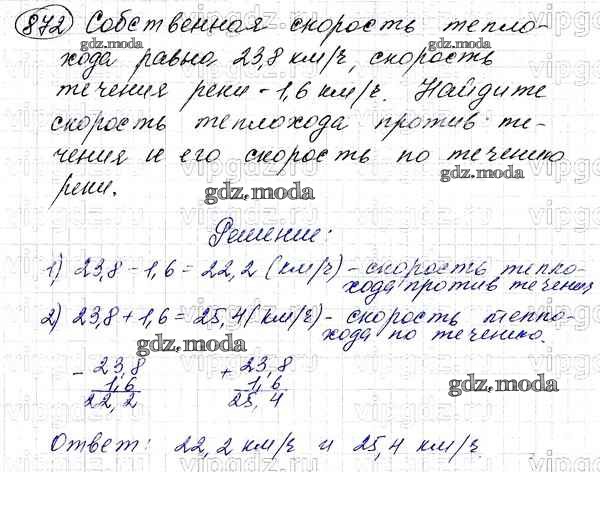 872 Собственная скорость тепло-
хода равна 23,8 км/ч, скорость
течения реки - 1,6 км/ч. Найдите
скорость теплохода против те-
чения и его скорость по течению
реки.
gdz.moda
Решение:
1) 23,8 - 1,6 = 22,2 (км/ч) - скорость тепло-
хода против течения
2) 23,8 + 1,6 = 25,4 (км/ч) - скорость тепло-
хода по течению.
- 23,8 + 23,8
1,6 1,6
22,2 25,4
gdz.moda
Ответ: 22,2 км/ч и 25,4 км/ч.